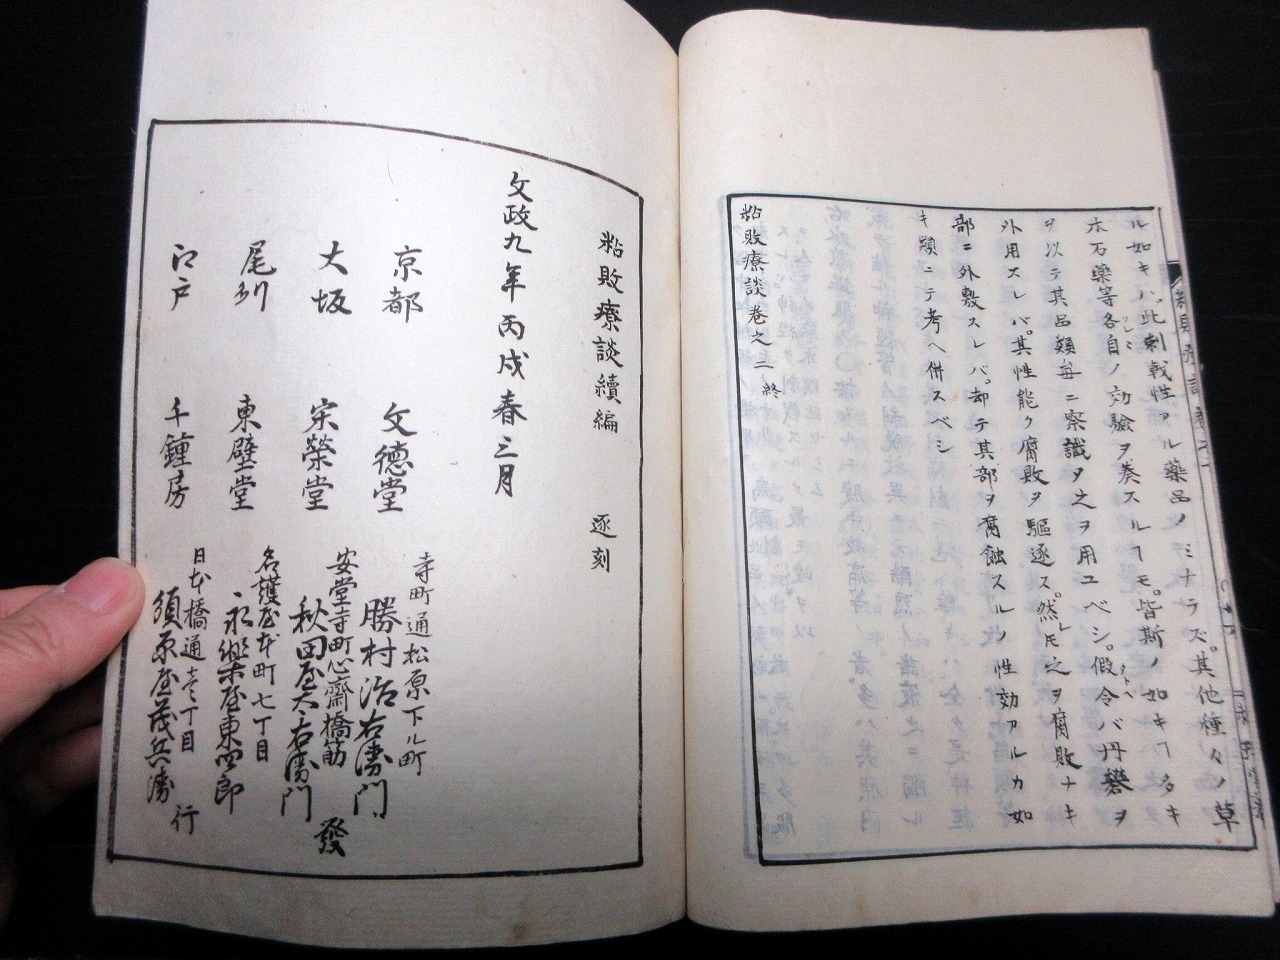 ル如キハ。此刺戟性アル藥品ノミナラズ。其他種々ノ草
木石藥等各自ノ効驗ヲ奏スルヿモ。皆斯ノ如キヿ多キ
ヲ以テ其品類毎ニ察識シ之ヲ用ユベシ。假令バ丹礬ヲ
外用スレバ。其性能ク腐敗ヲ驅逐ス。然レ𪜈之ヲ腐敗ナキ
部ニ外敷スレバ。却テ其部ヲ腐蝕スルノ性効アルカ如
キ類ニテ考ヘ併スベシ
粘敗療談卷之二終
粘敗療談續編 逐刻
文政九年丙戌春三月
京都 文德堂 寺町通松原下ル町 勝村治右衛門
大坂 宋榮堂 安堂寺町心齋橋筋 秋田屋太右衛門
發
尾州 東壁堂 名護屋本町七丁目 永樂屋東四郎
江戸 千鍾房 日本橋通壹丁目 須原屋茂兵衛
行